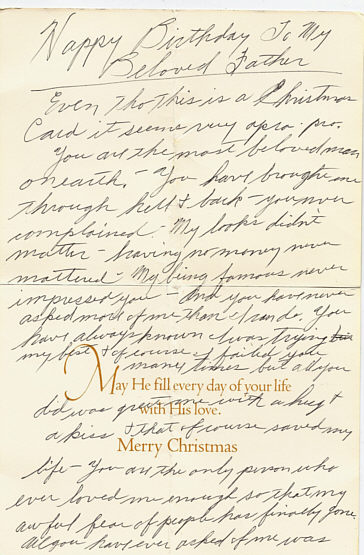 Happy Birthday To My
Beloved Father
Even tho this is a Christmas
Card it seems very apro. pro.
You are the most beloved man
on earth. - You have brought me
through hell & back - you never
complained. My looks didn't
matter - having no money never
mattered - My being famous never
impressed you - and you have never
asked more of me than I can do. You
have always known I was trying
my best & of course I failed you
many times but all you
May He fill every day of your life
did was greet me with a hug &
with His love.
a kiss & that of course saved my
Merry Christmas
life - You are the only person who
ever loved me enough so that my
awful fear of people has finally gone
All you have ever asked of me was